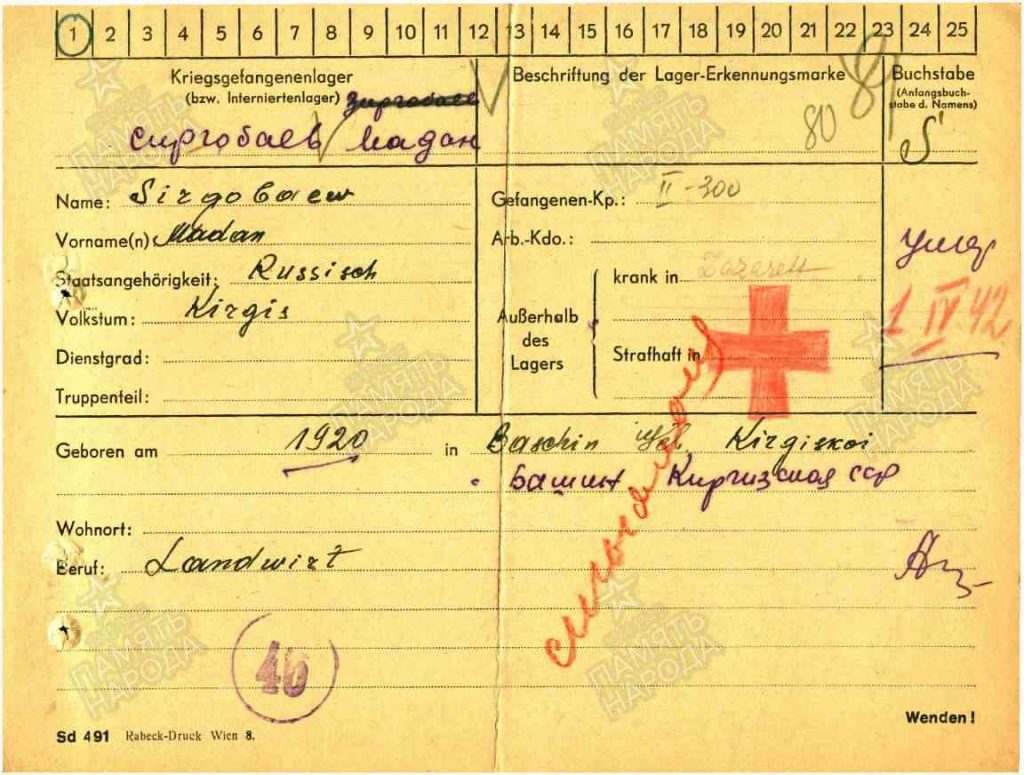 1 2 3 4 5 6 7 8 9 10 11 12 13 14 15 16 17 18 19 20 21 22 23 24 25
Kriegsgefangenenlager
(bzw. Interniertenlager)
Сиргобаев Мадан
Beschriftung der Lager-Erkennungsmarke
80
Buchstabe
(Anfangsbuch-
stabe d. Namens)
S
Name: Sirgobaew
Vorname(n) Madan
Staatsangehörigkeit: Russisch
Volkstum: Kirgis
Dienstgrad:
Truppenteil:
Gefangenen-Kp.: II-300
Arb.-Kdo.:
Außerhalb
des
Lagers
krank in Lazarett
Strafhaft in
умер
1 IV.42
Geboren am 1920 in Baschin Kirgiskoi
Башин Киргизская ССР
Wohnort:
Beruf: Landwirt
46
Wenden!
Sd 491 Rabeck-Druck Wien 8.
ПАМЯТЬ
НАРОДА